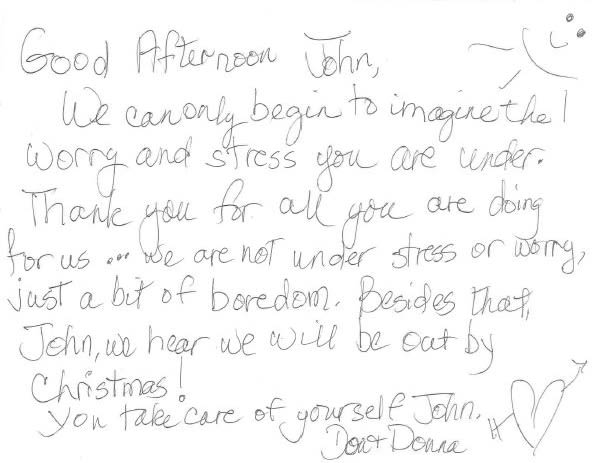 Good Afternoon John,
We can only begin to imagine the
worry and stress you are under.
Thank you for all you are doing
for us ... we are not under stress or worry,
just a bit of boredom. Besides that,
John, we hear we will be out by
Christmas!
You take care of yourself John.
Don + Donna